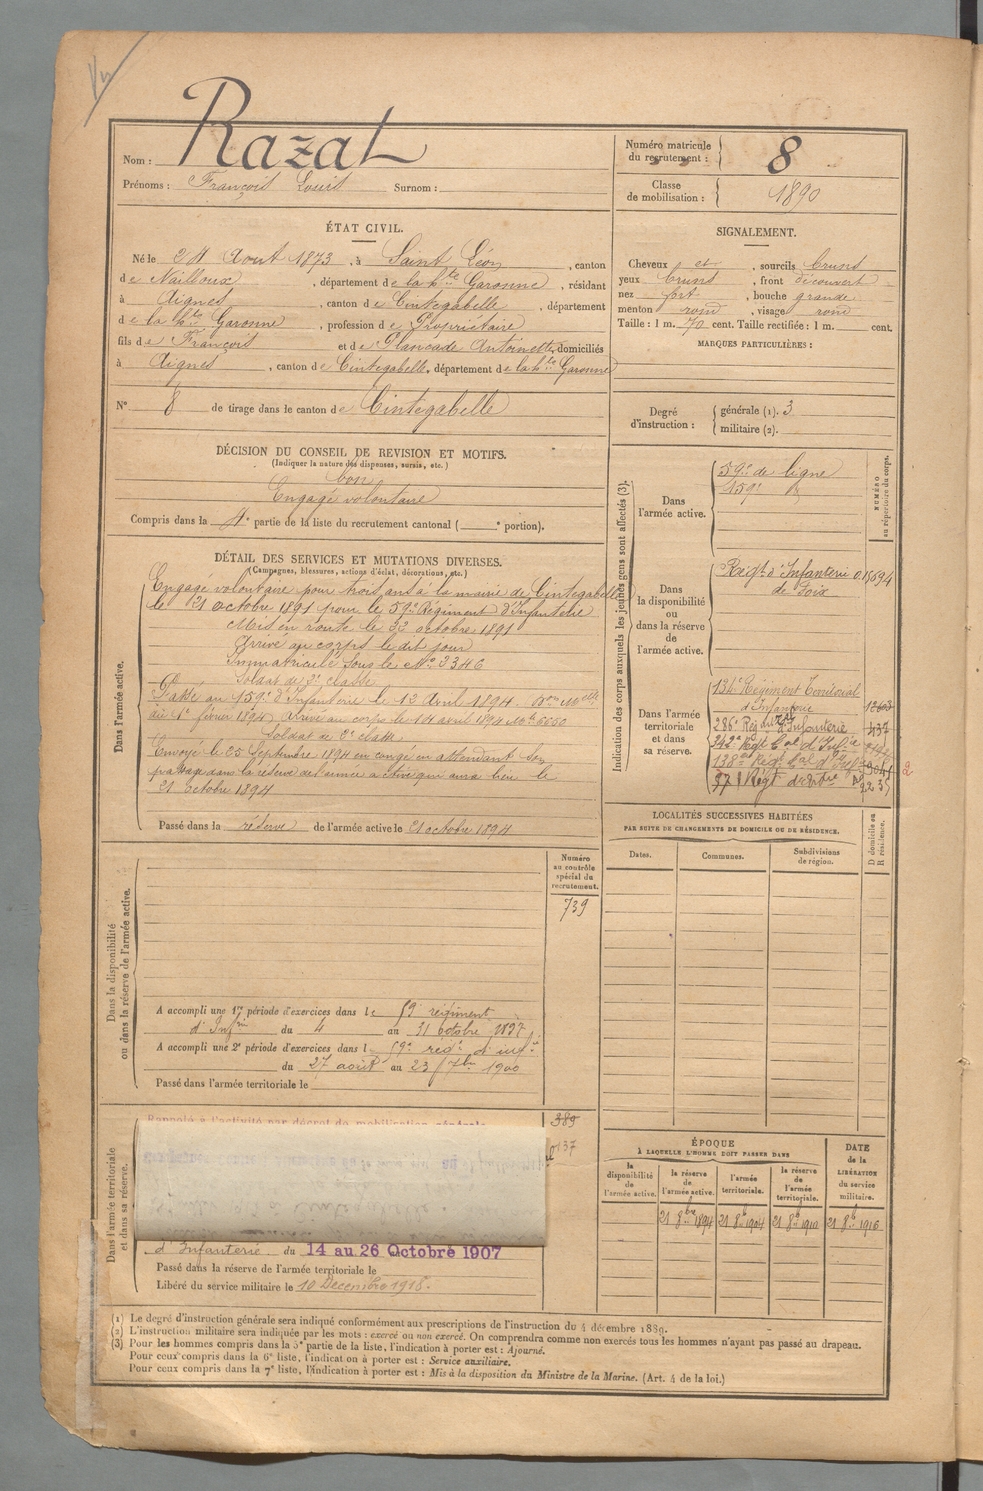 Nom : Razat
Prénoms : François Louis Surnom :
Numéro matricule du recrutement : 8
Classe de mobilisation : 1890
ÉTAT CIVIL.
Né le 24 Aout 1873, à Saint Léon, canton
de Nailloux, département de la hte Garonne, résidant
à Aignes, canton de Cintegabelle, département
de la hte Garonne, profession de Propriétaire
fils de François et de Plancade Antoinette, domiciliés
à Aignes, canton de Cintegabelle, département de la hte Garonne
N° 8 de tirage dans le canton de Cintegabelle
SIGNALEMENT.
Cheveux et, sourcils bruns
yeux bruns, front découvert
nez fort, bouche grande
menton rond, visage rond
Taille : 1 m. 70 cent. Taille rectifiée : 1 m. cent.
MARQUES PARTICULIÈRES :
Degré d'instruction : générale (1). 3
militaire (2).
DÉCISION DU CONSEIL DE REVISION ET MOTIFS.
(Indiquer la nature des dispenses, sursis, etc.)
bon
Engagé volontaire
Compris dans la 4e partie de la liste du recrutement cantonal ( e portion).
DÉTAIL DES SERVICES ET MUTATIONS DIVERSES.
(Campagnes, blessures, actions d'éclat, décorations, etc.)
Dans l'armée active.
Engagé volontaire pour trois ans à la mairie de Cintegabelle
le 21 octobre 1891 pour le 59e Régiment d'Infanterie
Mis en route le 22 octobre 1891
Arrivé au corps le dit jour
Immatriculé sous le No 3346
Soldat de 2e classe
Passé au 159e d'Infanterie le 12 Avril 1894
du 1er février 1894) Arrivé au corps le 14 avril 1894 Mle 6650
Soldat de 2e classe
Envoyé le 25 Septembre 1894 en congé en attendant son
passage dans la réserve de l'armée active qui aura lieu le
21 octobre 1894
Passé dans la réserve de l'armée active le 21 octobre 1894
Indication des corps auxquels les jeunes gens sont affectés (3).
NUMÉRO au répertoire du corps.
Dans l'armée active.
59e de ligne
159e
Dans la disponibilité ou dans la réserve de l'armée active.
Régt d'Infanterie 0.15694
de Foix
Dans l'armée territoriale et dans sa réserve.
134e Régiment Territorial
d'Infanterie
286e Régiment d'Infanterie 437
138e Régt tal d'Infie
LOCALITÉS SUCCESSIVES HABITÉES
PAR SUITE DE CHANGEMENTS DE DOMICILE OU DE RÉSIDENCE.
Dates. Communes. Subdivisions de région. D domicile ou R résidence.
Dans la disponibilité ou dans la réserve de l'armée active.
Numéro au contrôle spécial du recrutement.
739
A accompli une 1re période d'exercices dans le 59 régiment
d'Infrie du 4 au 31 octobre 1897
A accompli une 2e période d'exercices dans le 59e régt d'infie
du 27 août au 23 7bre 1900
Passé dans l'armée territoriale le
Dans l'armée territoriale et dans sa réserve.
Rappelé à l'activité par décret de mobilisation générale
389
d'Infanterie du 14 au 26 Octobre 1907
Passé dans la réserve de l'armée territoriale le
Libéré du service militaire le 10 Décembre 1918.
ÉPOQUE
À LAQUELLE L'HOMME DOIT PASSER DANS
la disponibilité de l'armée active. la réserve de l'armée active. l'armée territoriale. la réserve de l'armée territoriale.
DATE de la LIBÉRATION du service militaire.
21 8bre 1894 21 8b 1904 21 8b 1910 21 8b 1916
(1) Le degré d'instruction générale sera indiqué conformément aux prescriptions de l'instruction du 4 décembre 1889.
(2) L'instruction militaire sera indiquée par les mots : exercé ou non exercé. On comprendra comme non exercés tous les hommes n'ayant pas passé au drapeau.
(3) Pour les hommes compris dans la 5e partie de la liste, l'indication à porter est : Ajourné.
Pour ceux compris dans la 6e liste, l'indication à porter est : Service auxiliaire.
Pour ceux compris dans la 7e liste, l'indication à porter est : Mis à la disposition du Ministre de la Marine. (Art. 4 de la loi.)